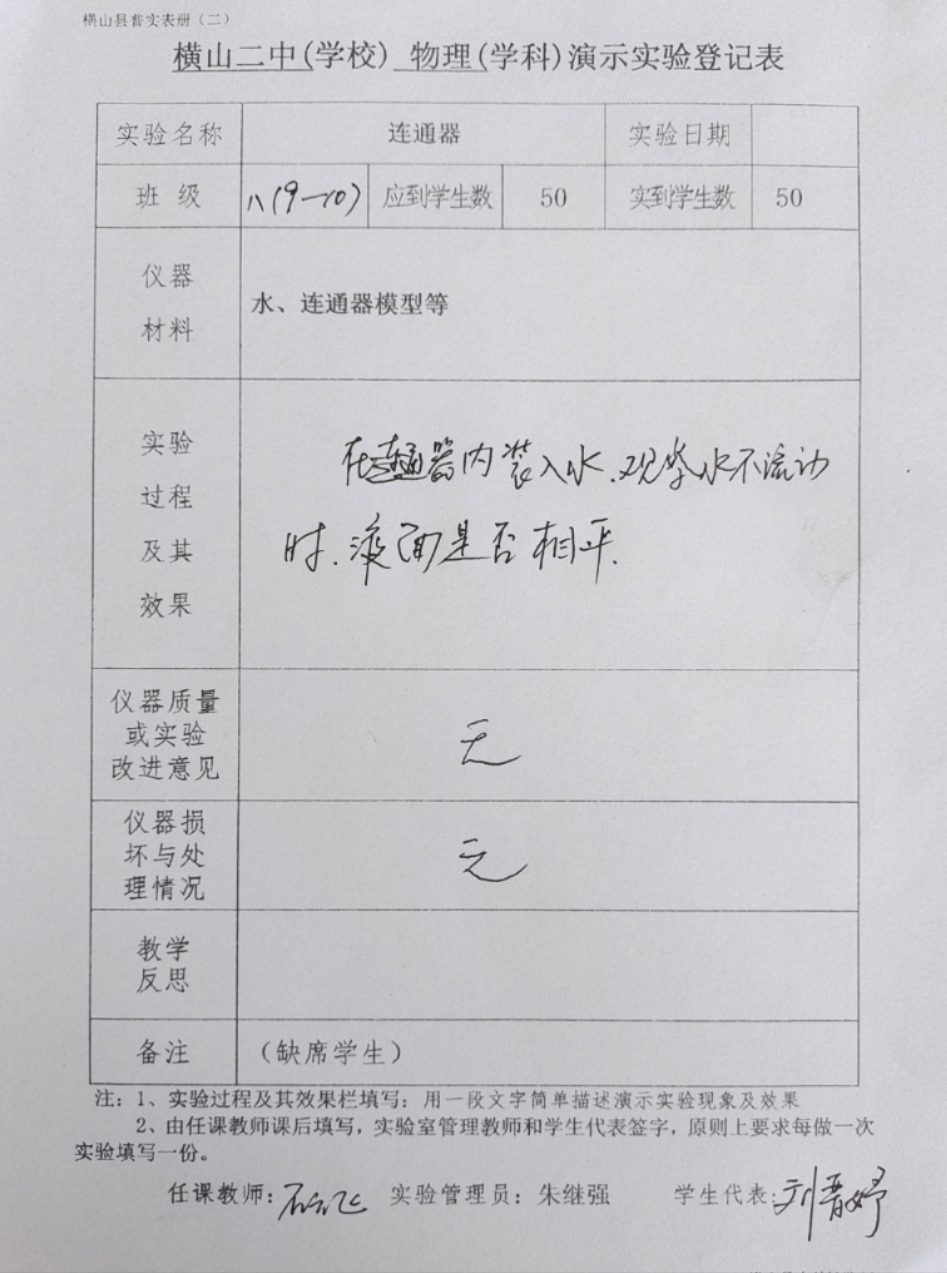 横山县普实表册（二）
横山二中(学校) 物理(学科)演示实验登记表
实验名称 连通器 实验日期
班 级 八(9—10) 应到学生数 50 实到学生数 50
仪器
材料
水、连通器模型等
实验
过程
及其
效果
在连通器内装入水.观察水不流动
时.液面是否相平.
仪器质量
或实验
改进意见
无
仪器损
坏与处
理情况
无
教学
反思
备注 （缺席学生）
注：1、实验过程及其效果栏填写：用一段文字简单描述演示实验现象及效果
2、由任课教师课后填写，实验室管理教师和学生代表签字，原则上要求每做一次
实验填写一份。
任课教师：石云飞 实验管理员：朱继强 学生代表：刘晋妤